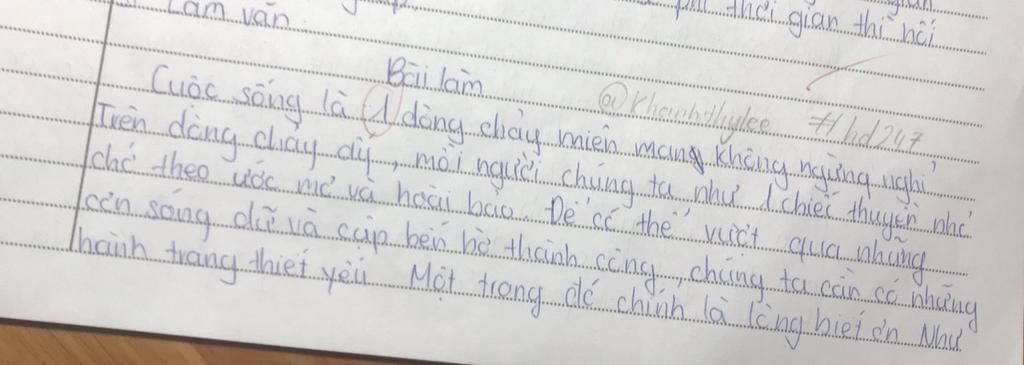 Làm văn
thời gian thì nói
Bài làm
@khanhthylee #hd247
Cuộc sống là 1 dòng chảy miên mang không ngừng nghỉ
Trên dòng chảy ấy, mỗi người chúng ta như 1 chiếc thuyền nhỏ
chở theo ước mơ và hoài bão. Để có thể vượt qua những
cơn sóng dữ và cập bến bờ thành công, chúng ta cần có những
hành trang thiết yếu Một trong đó chính là lòng biết ơn Như